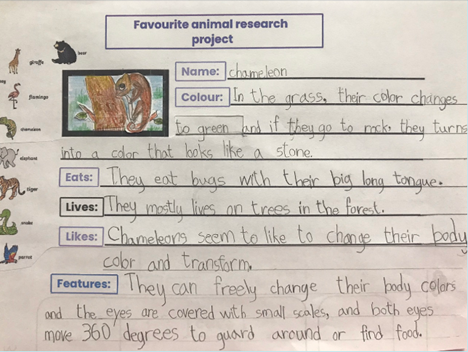 Favourite animal research
project
bear
giraffe
flamingo
chameleon
elephant
tiger
snake
parrot
Name: chameleon
Colour: In the grass, their color changes
to green and if they go to rock, they turns
into a color that looks like a stone.
Eats: They eat bugs with their big long tongue.
Lives: They mostly lives on trees in the forest.
Likes: Chameleons seem to like to change their body
color and transform.
Features: They can freely change their body colors
and the eyes are covered with small scales, and both eyes
move 360 degrees to guard around or find food.